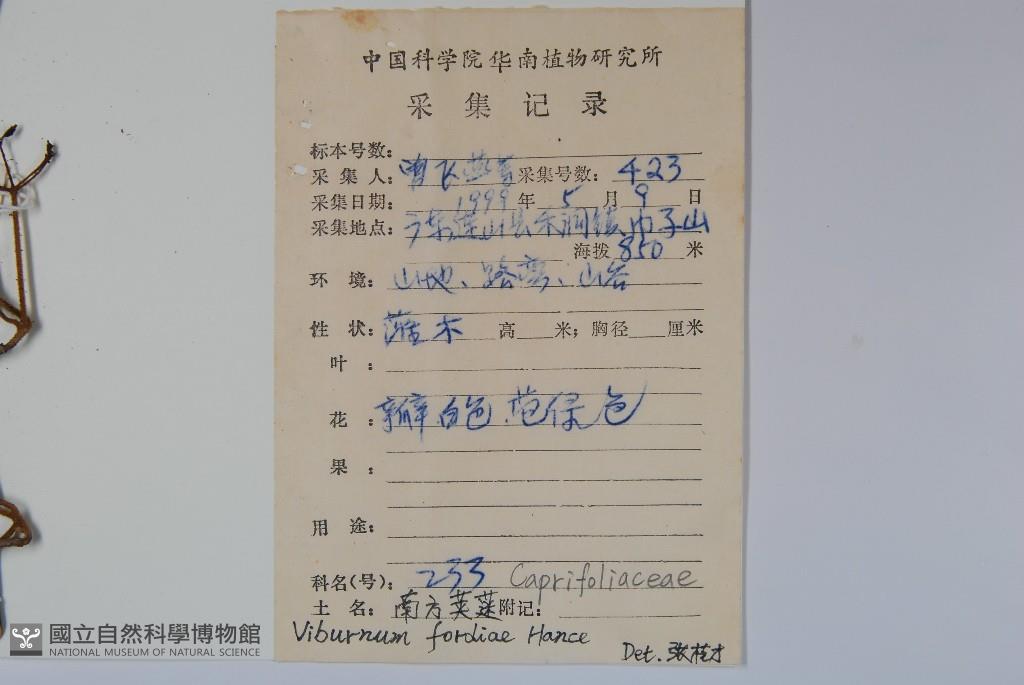 中国科学院华南植物研究所
采集记录
标本号数：
采集人：曾飞燕等 采集号数：423
采集日期：1999年5月9日
采集地点：广东连山县禾洞镇巾子山
海拨850米
环境：山地、路旁、山谷
性状：灌木 高 米；胸径 厘米
叶：
花：瓣白色.苞绿色
果：
用途：
科名(号)：233 Caprifoliaceae
土名：南方荚蒾 附记：
Viburnum fordiae Hance
Det. 张桂才
國立自然科學博物館
NATIONAL MUSEUM OF NATURAL SCIENCE